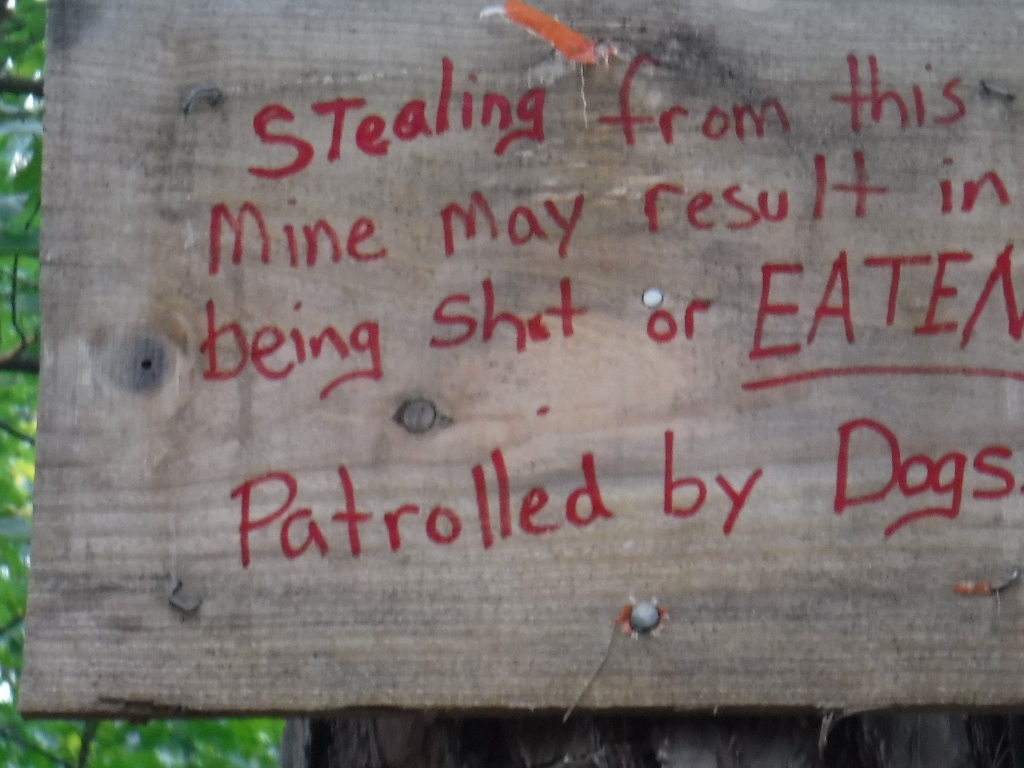 STealing from this
Mine may result in
being shot or EATEN
Patrolled by Dogs.